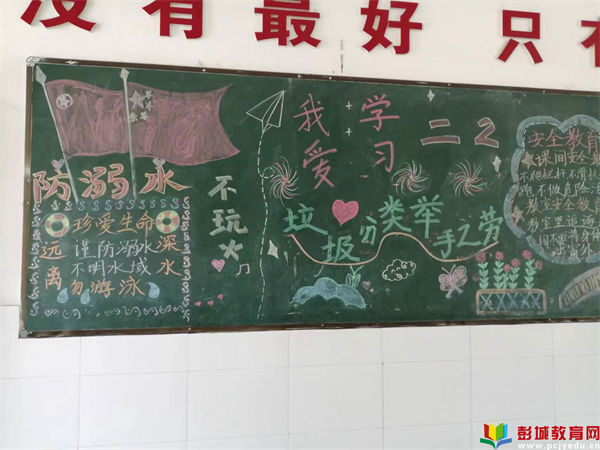 没有最好 只有
防溺水
珍爱生命
谨防溺水
不明水域
勿游泳
远离
深水
不玩火
我爱学习
二2
垃圾分类举手之劳
安全教育
课间安全教
不爬栏杆不滑扶
跑,不做危险活
教室安全教育
彭城教育网
www.pcjyedu.cn